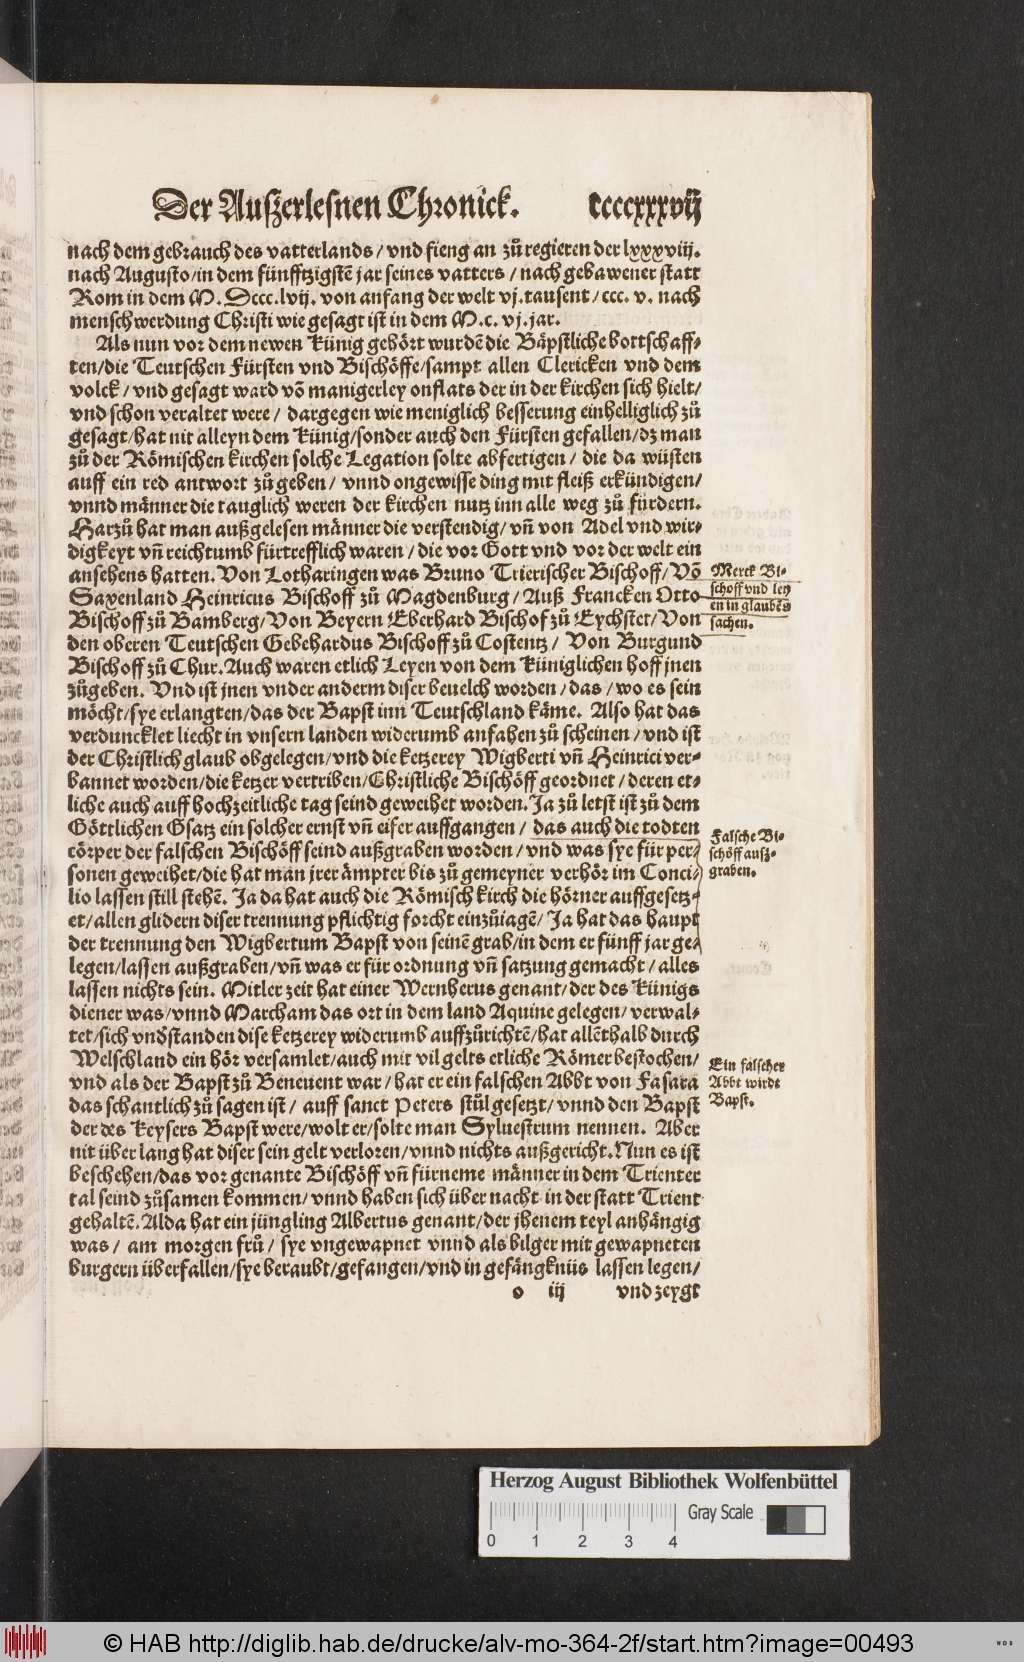 Der Außerlesnen Chronick. ccccxxxvij
nach dem gebrauch des vatterlands / vnd fieng an zů regieren der lxxxviij.
nach Augusto / in dem fünfftzigstē jar seines vatters / nach gebawener statt
Rom in dem M. Dccc.lvij. von anfang der welt vj. tausent / ccc. v. nach
menschwerdung Christi wie gesagt ist in dem M.c. vj. jar.
Als nun vor dem newen Künig gehört wurdē die Bäpstliche bottschaff-
ten / die Teutschen Fürsten vnd Bischöffe / sampt allen Clericken vnd dem
volck / vnd gesagt ward võ manigerley onflats der in der kirchen sich hielt /
vnd schon veraltet were / dargegen wie meniglich besserung einhelliglich zů
gesagt / hat nit alleyn dem Künig / sonder auch den Fürsten gefallen / dz man
zů der Römischen kirchen solche Legation solte abfertigen / die da wüsten
auff ein red antwort zů geben / vnnd ongewisse ding mit fleiß erkündigen /
vnnd männer die tauglich weren der kirchen nutz inn alle weg zů fürdern.
Harzů hat man außgelesen männer die verstendig / vñ von Adel vnd wir-
digkeyt vñ reichtumb fürtrefflich waren / die vor Gott vnd vor der welt ein
ansehens hatten. Von Lotharingen was Bruno Trierischer Bischoff / Võ
Saxenland Heinricus Bischoff zů Magdenburg / Auß Francken Otto
Bischoff zů Bamberg / Von Beyern Eberhard Bischof zů Eychstet / Von
den oberen Teutschen Gebehardus Bischoff zů Costentz / Von Burgund
Bischoff zů Chur. Auch waren etlich Leyen von dem Küniglichen hoff jnen
zůgeben. Vnd ist jnen vnder anderm diser beuelch worden / das / wo es sein
möcht / sye erlangten / das der Bapst inn Teutschland käme. Also hat das
verduncklet liecht in vnsern landen widerumb anfahen zů scheinen / vnd ist
der Christlich glaub obgelegen / vnd die ketzerey Wigberti vñ Heinrici ver-
bannet worden / die ketzer vertriben / Christliche Bischöff geordnet / deren et-
liche auch auff hochzeitliche tag seind geweihet worden. Ja zů letst ist zů dem
Göttlichen Gsatz ein solcher ernst vñ eifer auffgangen / das auch die todten
cörper der falschen Bischöff seind außgraben worden / vnd was sye für per-
sonen geweihet / die hat man jrer ämpter bis zů gemeyner verhör im Conci-
lio lassen still stehē. Ja da hat auch die Römisch kirch die hörner auffgesetz-
et / allen glidern diser trennung pflichtig forcht einzůiagē / Ja hat das haupt
der trennung den Wigbertum Bapst von seinē grab / in dem er fünff jar ge-
legen / lassen außgraben / vñ was er für ordnung vñ satzung gemacht / alles
lassen nichts sein. Mitler zeit hat einer Wernherus genant / der des Künigs
diener was / vnnd Marcham das ort in dem land Aquine gelegen / verwal-
tet / sich vndstanden dise ketzerey widerumb auffzůrichtē / hat allēthalb durch
Welschland ein hör versamlet / auch mit vil gelts etliche Römer bestochen /
vnd als der Bapst zů Beneuent war / hat er ein falschen Abbt von Fasara
das schantlich zů sagen ist / auff sanct Peters stůl gesetzt / vnnd den Bapst
der des Keysers Bapst were / wolt er / solte man Syluestrum nennen. Aber
nit über lang hat diser sein gelt verloren / vnnd nichts außgericht. Nun es ist
beschehen / das vor genante Bischöff vñ fürneme männer in dem Trienter
tal seind zůsamen kommen / vnnd haben sich über nacht in der statt Trient
gehaltē. Alda hat ein jüngling Albertus genant / der jhenem teyl anhängig
was / am morgen frů / sye vngewapnet vnnd als bilger mit gewapneten
burgern überfallen / sye beraubt / gefangen / vnd in gefängknüs lassen legen /
o iij vnd zeygt
Merck Bi-
schoff vnd ley
en in glaubēs
sachen.
Falsche Bi-
schöff auß-
graben.
Ein falscher
Abbt wirdt
Bapst.
Herzog August Bibliothek Wolfenbüttel
Gray Scale
0 1 2 3 4
© HAB http://diglib.hab.de/drucke/alv-mo-364-2f/start.htm?image=00493